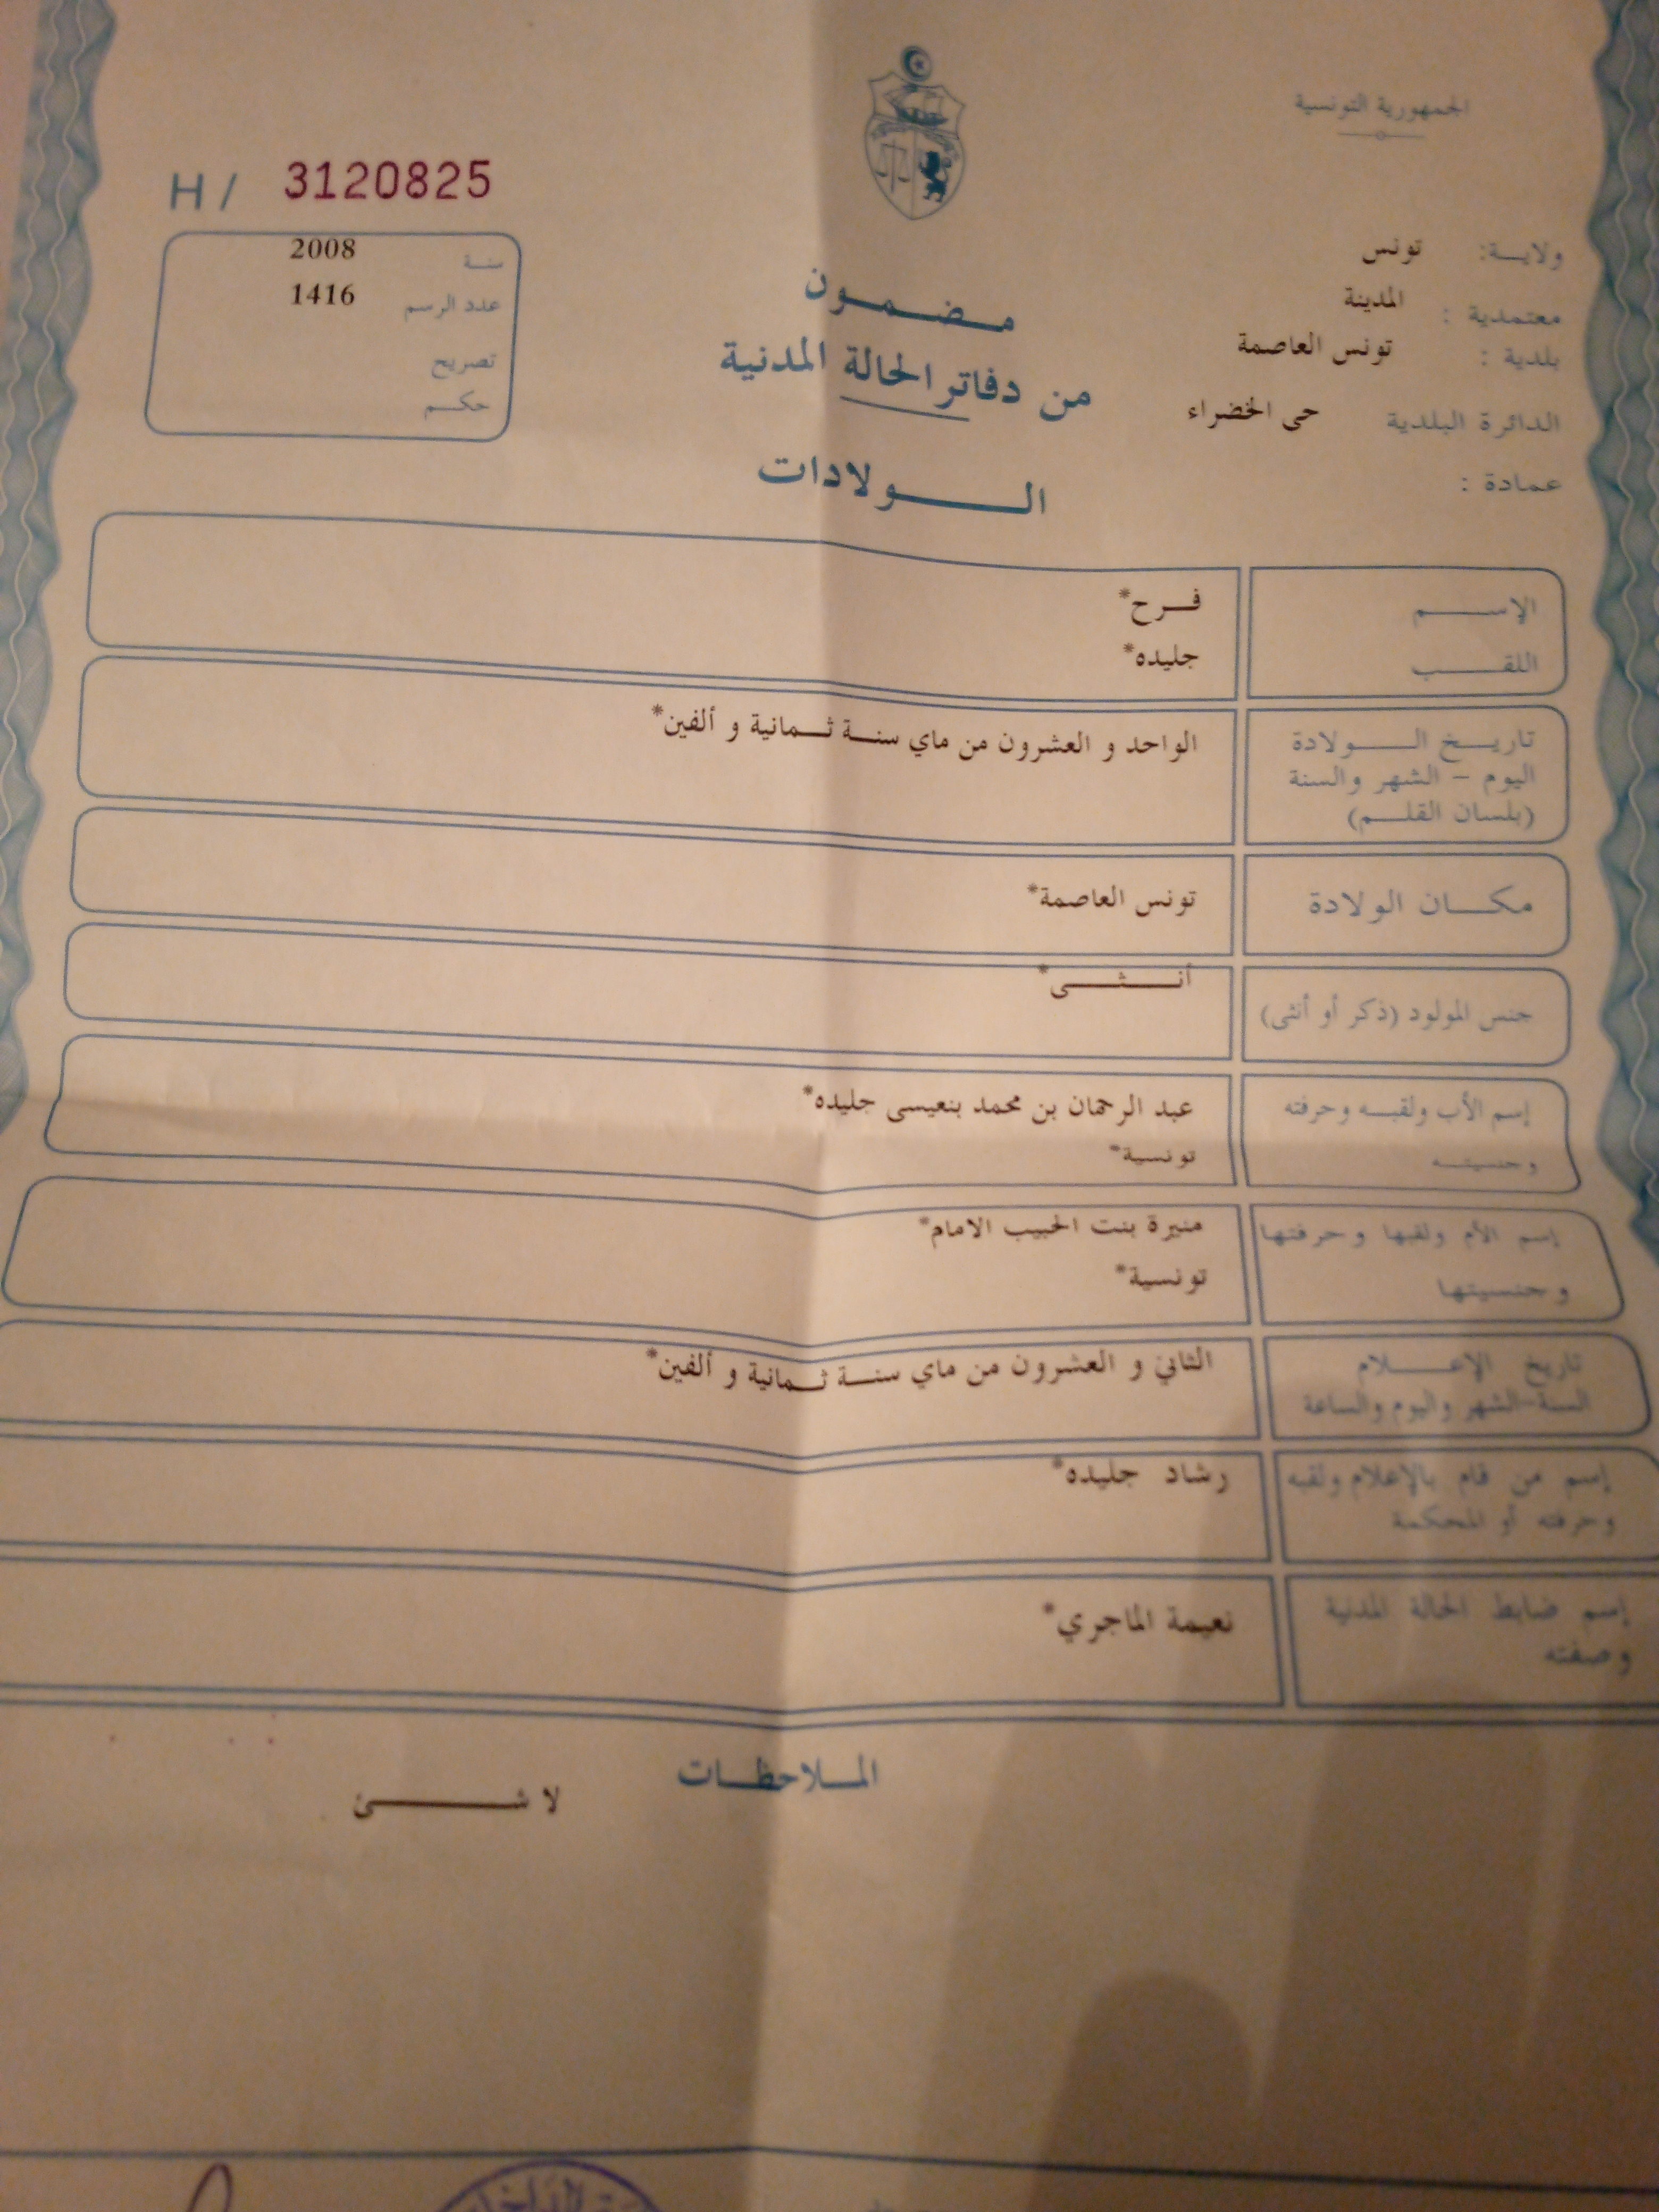 الجمهورية التونسية
H / 3120825
ولايـة: تونس
معتمدية : المدينة
بلدية : تونس العاصمة
الدائرة البلدية حى الخضراء
عمادة :
سنـة 2008
عدد الرسم 1416
تصريح
حكـم
مـضـمـون
من دفاتر الحالة المدنية
الـولادات
الإسـم فـرح*
اللقـب جليده*
تاريـخ الـولادة الواحد و العشرون من ماي سنـة ثـمانية و ألفين*
اليوم – الشهر والسنة
(بلسان القلـم)
مكـان الولادة تونس العاصمة*
جنس المولود (ذكر أو أنثى) أنـثـى*
إسم الأب ولقبـه وحرفته عبد الرحمان بن محمد بنعيسى جليده*
وجنسيتـه تونسية*
إسم الأم ولقبها وحرفتها منيرة بنت الحبيب الامام*
وجنسيتها تونسية*
تاريخ الإعـلام الثاني و العشرون من ماي سنـة ثـمانية و ألفين*
السنة-الشهر واليوم والساعة
إسم من قام بالإعلام ولقبه رشاد جليده*
وحرفته أو المحكمة
إسم ضابط الحالة المدنية نعيمة الماجري*
وصفته
المـلاحظـات
لا شـئ